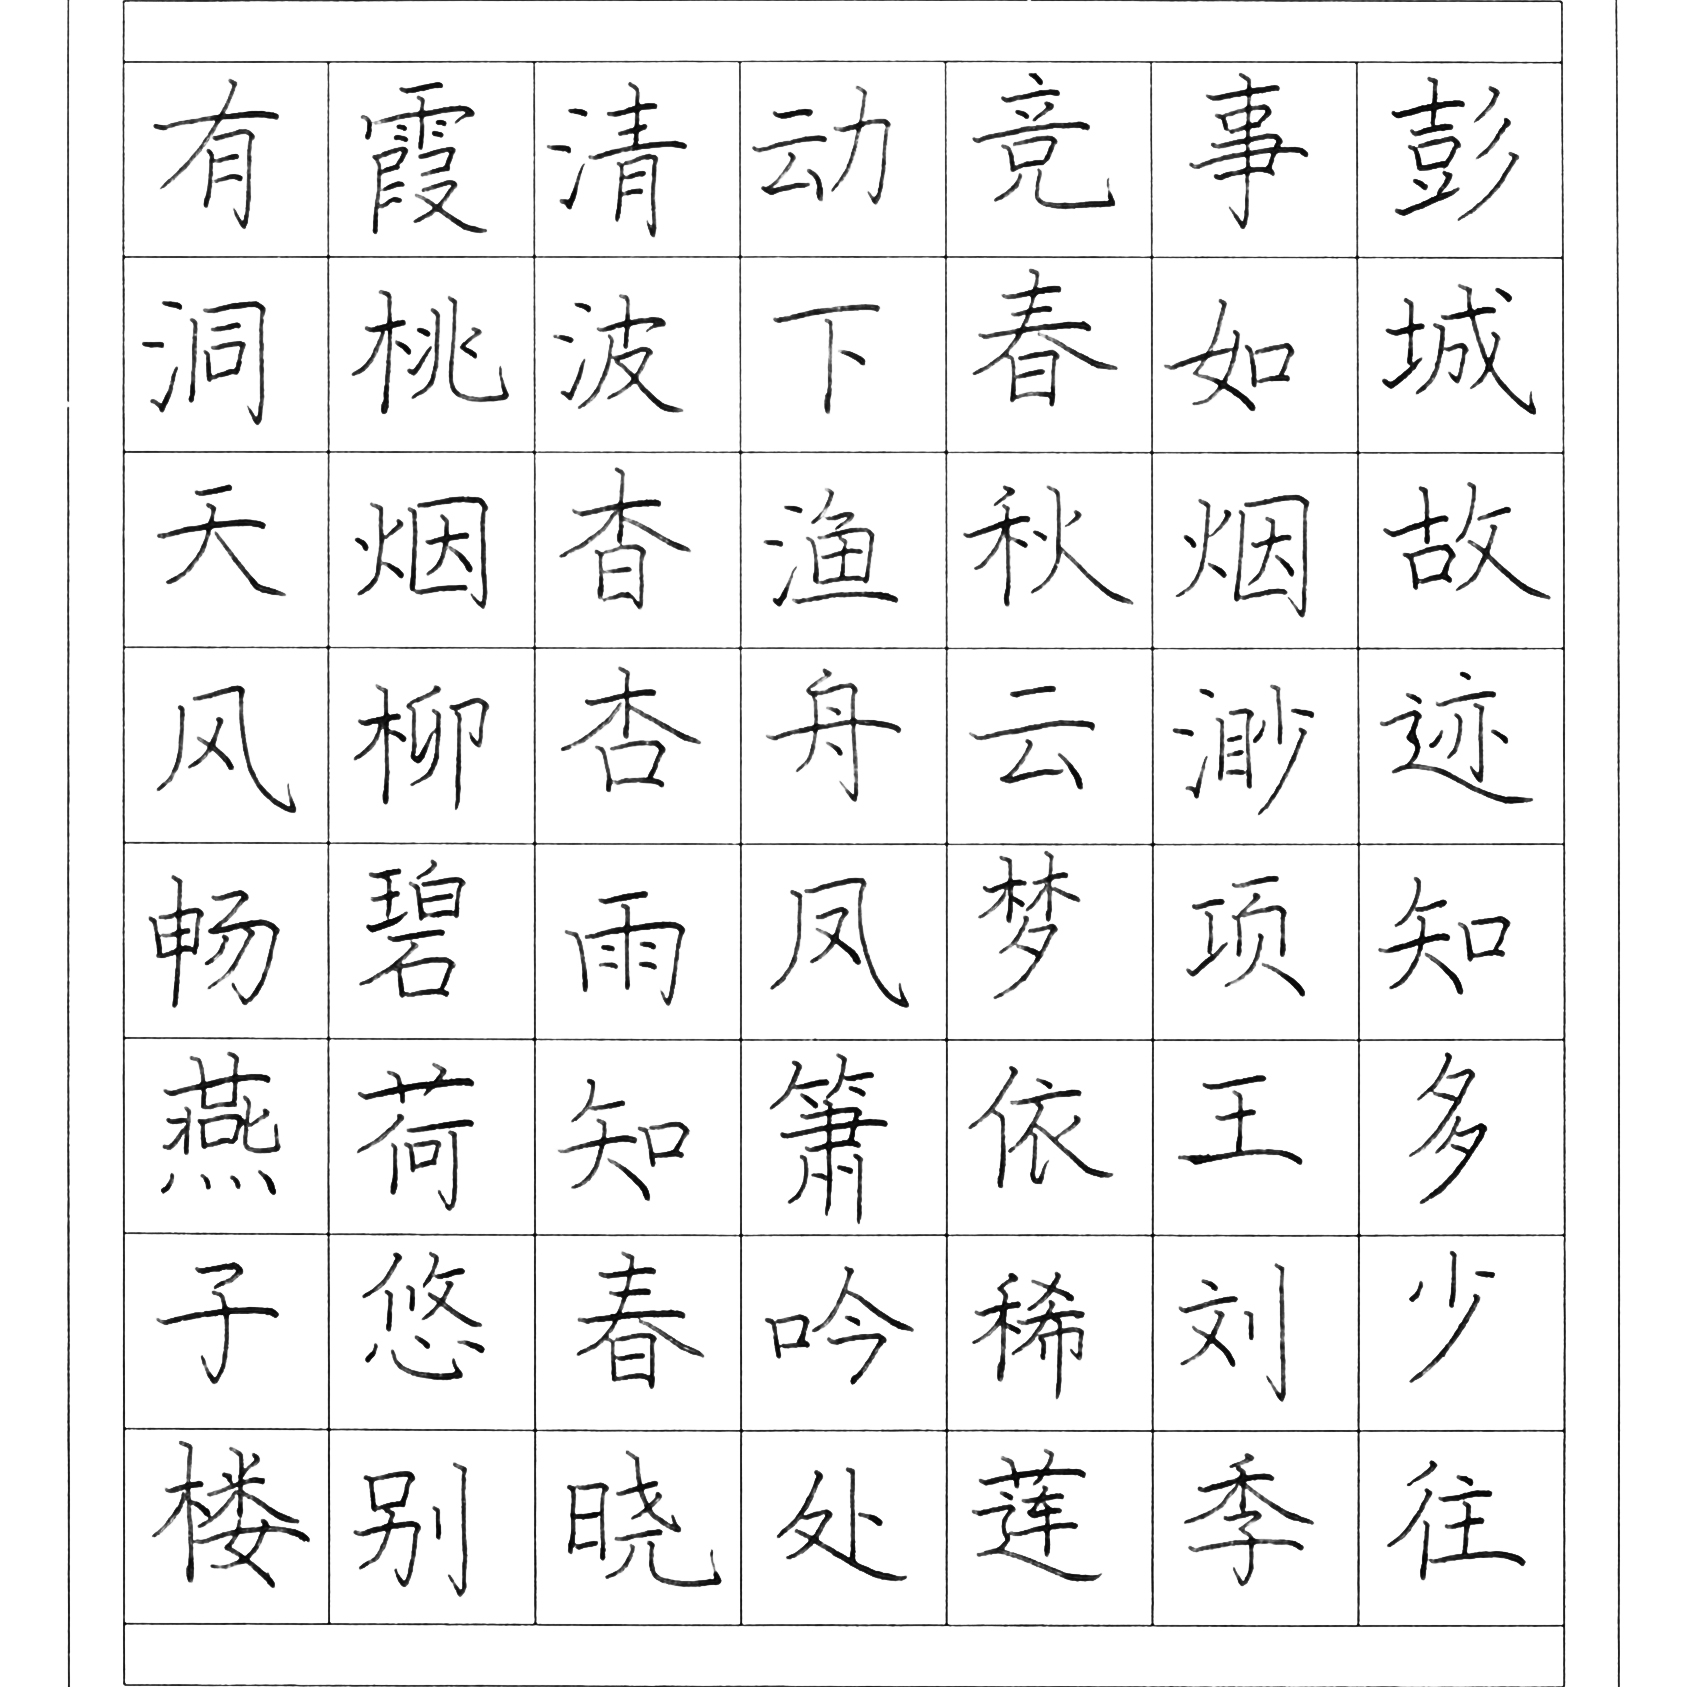 彭城故迹知多少往
事如烟渺项王刘季
竞春秋云梦依稀莲
动下渔舟凤箫吟处
清波杳杏雨知春晓
霞桃烟柳碧荷悠别
有洞天风畅燕子楼